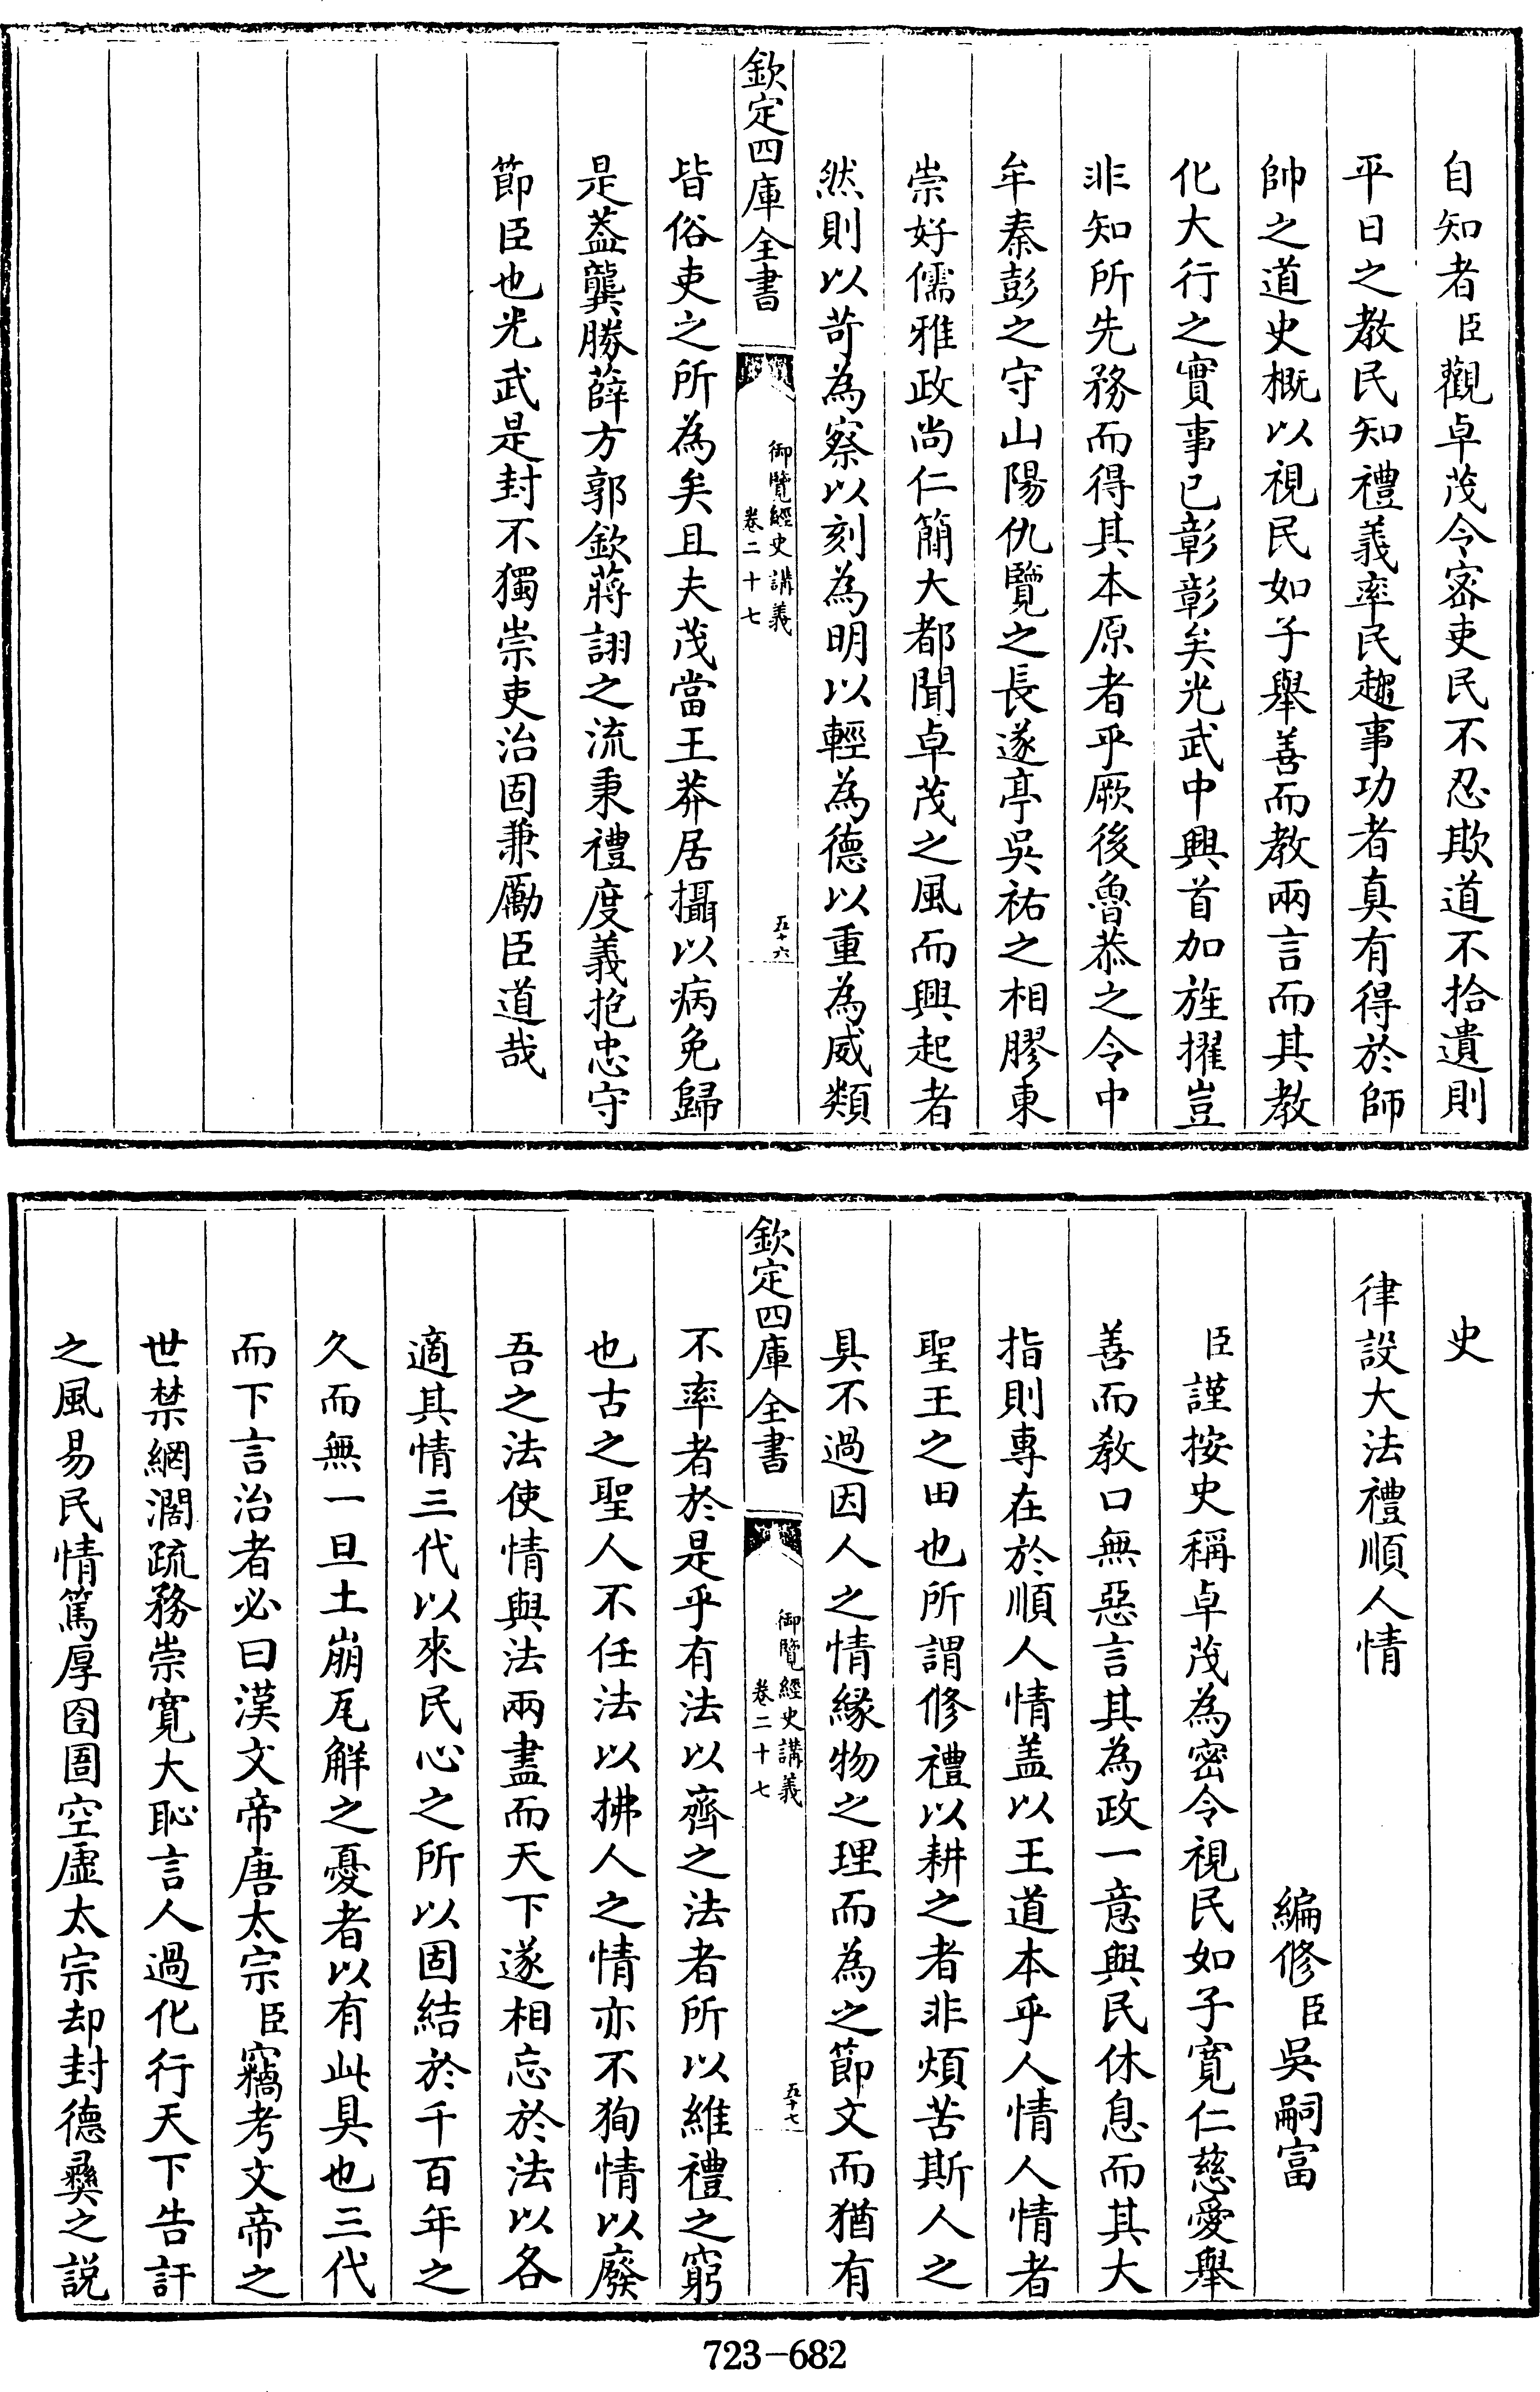 自知者臣觀卓茂令宻吏民不忍欺道不拾遺則
平日之教民知禮義率民趨事功者真有得於師
帥之道史概以視民如子舉善而教兩言而其教
化大行之實事已彰彰矣光武中興首加旌擢豈
非知所先務而得其本原者乎厥後魯恭之令中
牟秦彭之守山陽仇覽之長遂亭吳祐之相膠東
崇好儒雅政尚仁簡大都聞卓茂之風而興起者
然則以苛為察以刻為明以輕為德以重為威類
欽定四庫全書
御覽經史講義
卷二十七
五十六
皆俗吏之所為矣且夫茂當王莽居攝以病免歸
是葢龔勝薛方郭欽蔣詡之流秉禮度義抱忠守
節臣也光武是封不獨崇吏治固兼勵臣道哉
史
律設大法禮順人情
編修臣吳嗣富
臣謹按史稱卓茂為密令視民如子寛仁慈愛舉
善而教口無惡言其為政一意與民休息而其大
指則專在於順人情盖以王道本乎人情人情者
聖王之田也所謂修禮以耕之者非煩苦斯人之
具不過因人之情緣物之理而為之節文而猶有
欽定四庫全書
御覽經史講義
卷二十七
五十七
不率者於是乎有法以齊之法者所以維禮之窮
也古之聖人不任法以拂人之情亦不狥情以廢
吾之法使情與法兩盡而天下遂相忘於法以各
適其情三代以來民心之所以固結於千百年之
久而無一旦土崩瓦解之憂者以有此具也三代
而下言治者必曰漢文帝唐太宗臣竊考文帝之
世禁網濶疏務崇寛大恥言人過化行天下告訐
之風易民情篤厚囹圄空虛太宗却封德彝之説
723-682